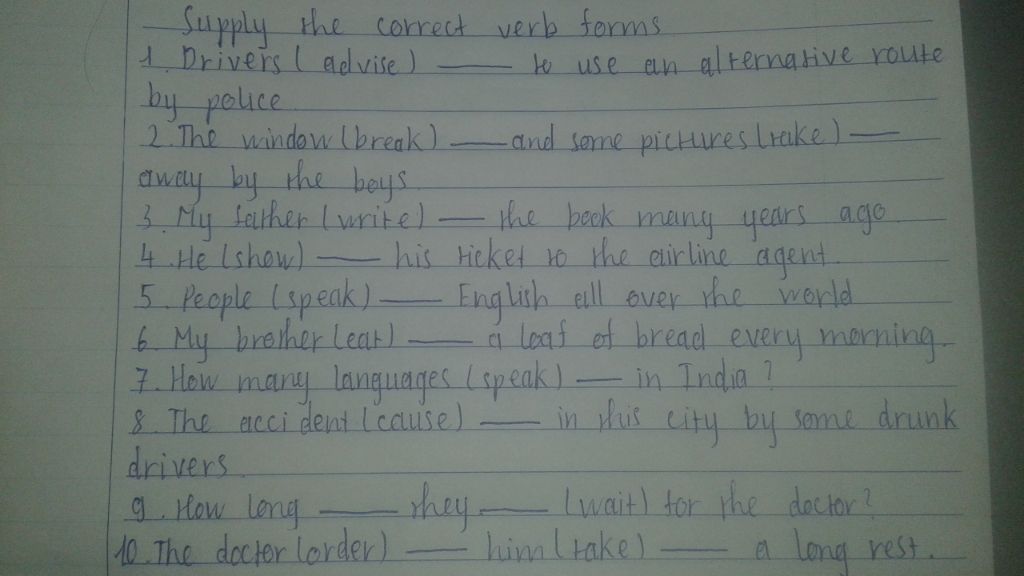 Supply the correct verb forms
1. Drivers (advise) _____ to use an alternative route
by police
2. The window (break) _____ and some pictures (take) _____
away by the boys.
3. My father (write) _____ the book many years ago.
4. He (show) _____ his ticket to the airline agent.
5. People (speak) _____ English all over the world
6. My brother (eat) _____ a loaf of bread every morning.
7. How many languages (speak) _____ in India ?
8. The accident (cause) _____ in this city by some drunk
drivers.
9. How long _____ they _____ (wait) for the doctor?
10. The doctor (order) _____ him (take) _____ a long rest.